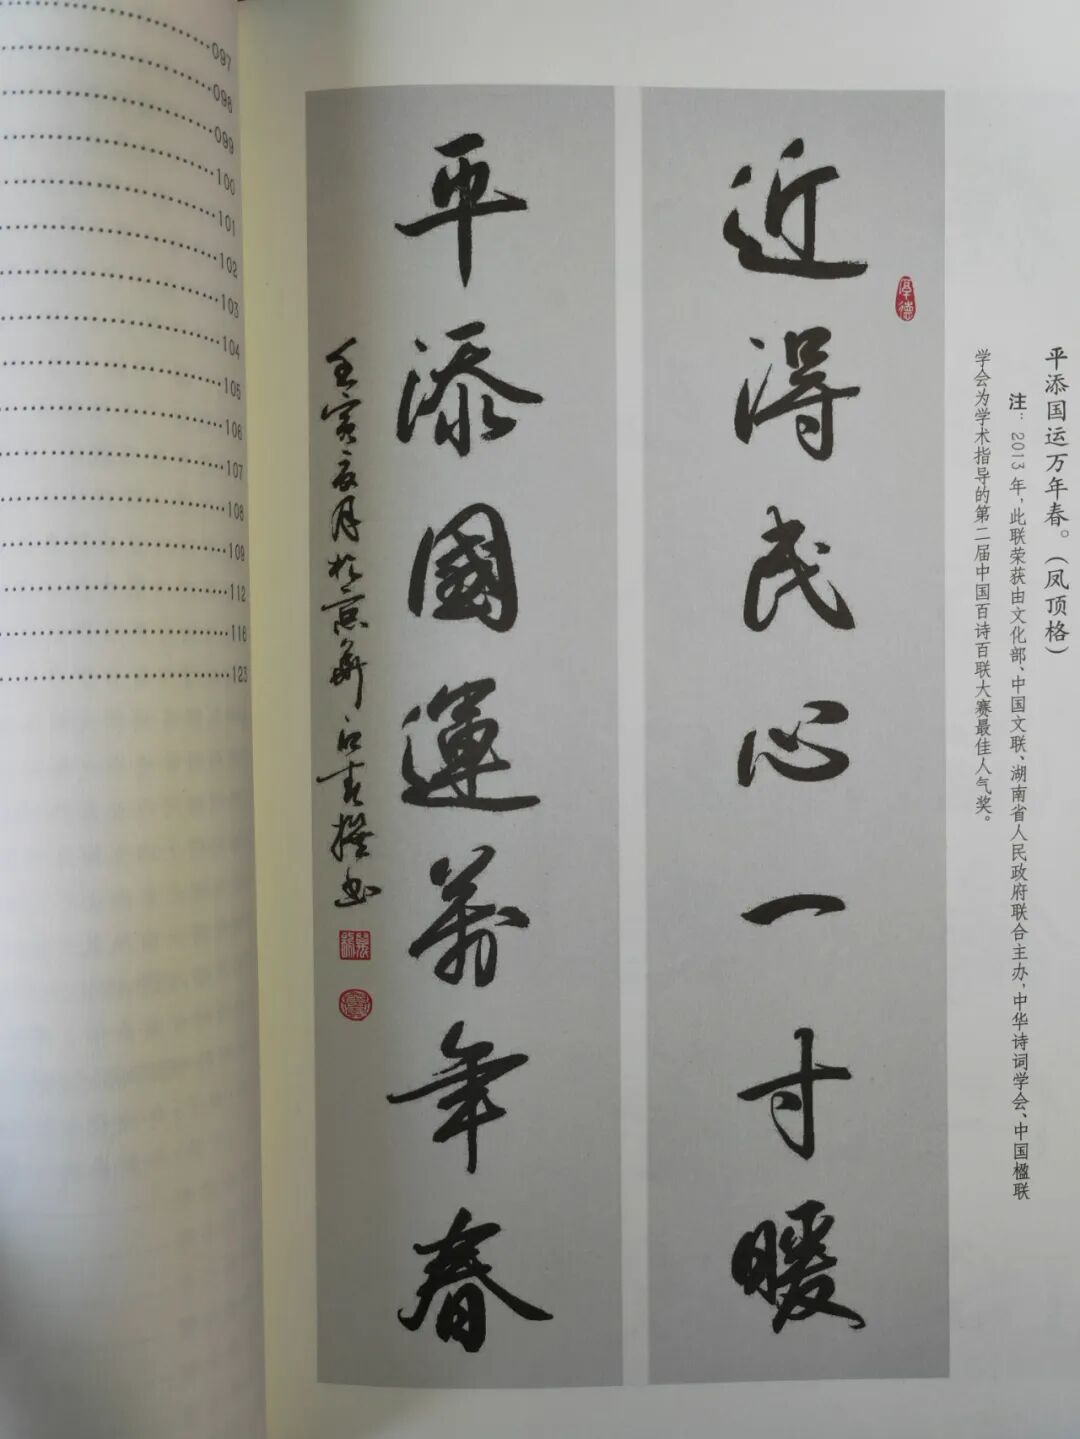 097
098
099
100
101
102
103
104
105
106
107
108
109
112
116
123
平添国运万年春。(凤顶格)
注:2013年,此联荣获由文化部、中国文联、湖南省人民政府联合主办,中华诗词学会、中国楹联
学会为学术指导的第二届中国百诗百联大赛最佳人气奖。
厚德
近得民心一寸暖
平添國運萬年春
壬寅夏月於京華江青撰書